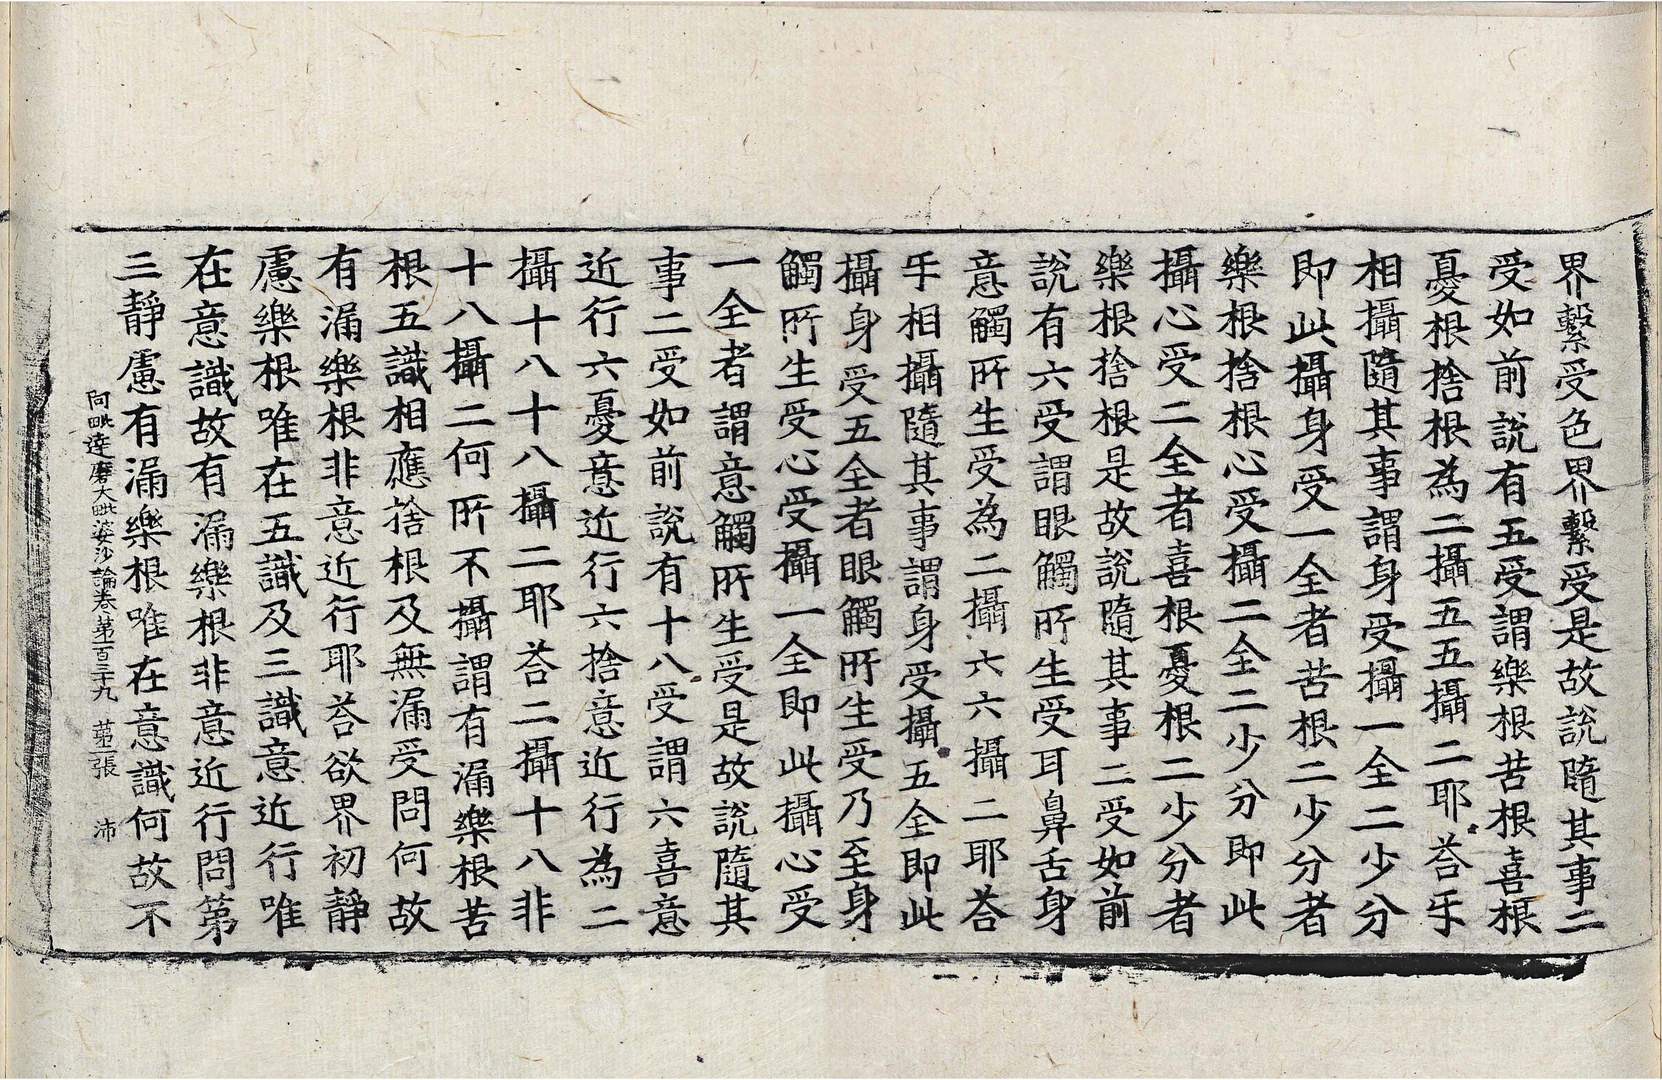 界繫受色界繫受是故說隨其事二
受如前說有五受謂樂根苦根喜根
憂根捨根為二攝五五攝二耶荅㸦
相攝隨其事謂身受攝一全二少分
即此攝身受一全者苦根二少分者
樂根捨根心受攝二全二少分即此
攝心受二全者喜根憂根二少分者
樂根捨根是故說隨其事二受如前
說有六受謂眼觸所生受耳鼻舌身
意觸所生受為二攝六六攝二耶荅
㸦相攝隨其事謂身受攝五全即此
攝身受五全者眼觸所生受乃至身
觸所生受心受攝一全即此攝心受
一全者謂意觸所生受是故說隨其
事二受如前說有十八受謂六喜意
近行六憂意近行六捨意近行為二
攝十八十八攝二耶荅二攝十八非
十八攝二何所不攝謂有漏樂根苦
根五識相應捨根及無漏受問何故
有漏樂根非意近行耶荅欲界初靜
慮樂根唯在五識及三識意近行唯
在意識故有漏樂根非意近行問第
三靜慮有漏樂根唯在意識何故不
阿毗達磨大毗婆沙論卷第一百三十九 第二張 沛